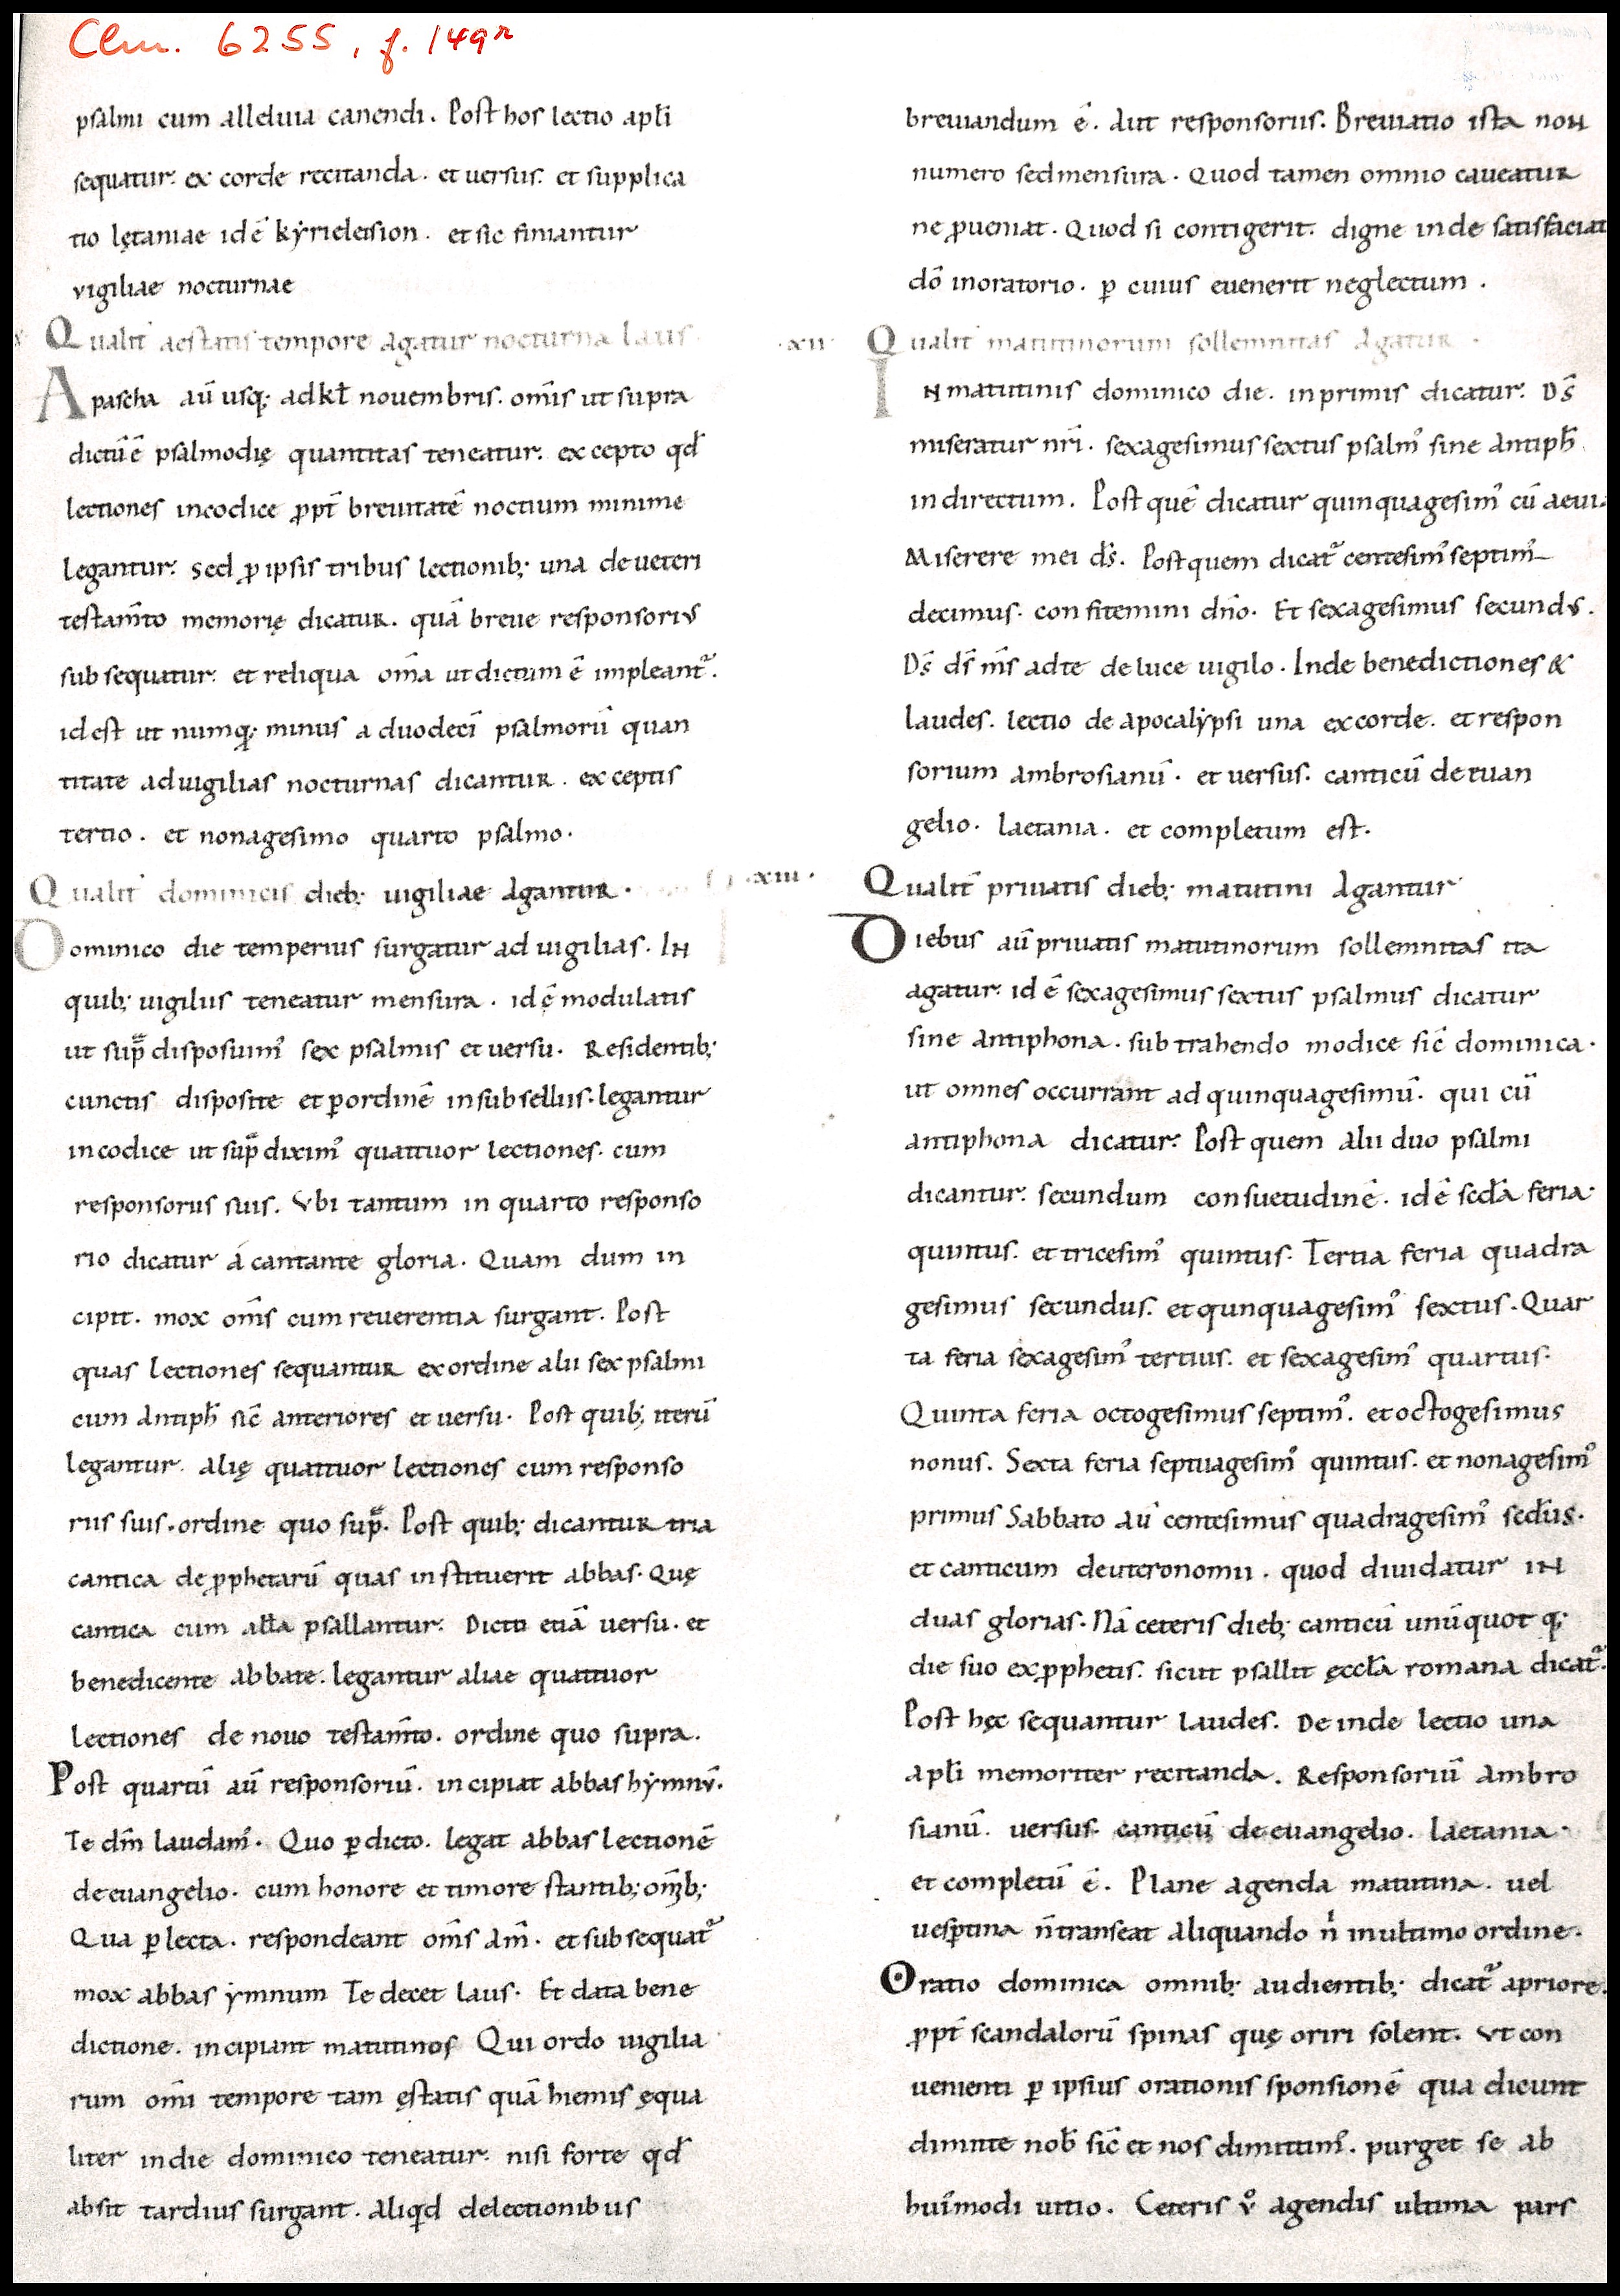 Clm. 6255, f. 149r
psalmi cum alleluia canendi. Post hos lectio apłi
sequatur. ex corde recitanda. et uersus. et supplica
tio lętaniae id ē kẏrieleision. et sic finiantur
vigiliae nocturnae
Qualit̄ aestatis tempore agatur nocturna laus.
A pascha aū usq; ad kł nouembris. om̄is ut supra
dictū ē psalmodię quantitas teneatur. excepto qđ
lectiones in codice ꝓpt̄ breuitatē noctium minime
legantur. sed ꝓ ipsis tribus lectionib; una de ueteri
testam̄to memorię dicatur. quā breue responsorius
subsequatur. et reliqua om̄a ut dictum ē impleant᷑.
id est ut numq̄; minus a duodecī psalmorū quan
titate ad uigilias nocturnas dicantur. exceptis
tertio. et nonagesimo quarto psalmo.
Qualit̄ dominicis dieb; uigiliae agantur.
Dominico die temperius surgatur ad uigilias. In
quib; uigiliis teneatur mensura. id ē modulatis
ut sup̄ disposuim᾽ sex psalmis et uersu. Residentib;
cunctis disposite et ꝑ ordinē in subselliis. legantur
in codice ut sup̄ dixim᾽ quattuor lectiones. cum
responsoriis suis. Vbi tantum in quarto responso
rio dicatur á cantante gloria. Quam dum in
cipit. mox om̄s cum reuerentia surgant. Post
quas lectiones sequantur ex ordine alii sex psalmi
cum antiph̄ sic̄ anteriores et uersu. Post quib; iterū
legantur. alię quattuor lectiones cum responso
riis suis. ordine quo sup̄. Post quib; dicantur tria
cantica de ꝓphetarū quas instituerit abbas. Quę
cantica cum ałła psallantur. Dicto etiā uersu. et
benedicente abbate. legantur aliae quattuor
lectiones de nouo testam̄to. ordine quo supra.
Post quartū aū responsoriū. incipiat abbas hẏmnū.
Te dm̄ laudam᾽. Quo ꝑdicto. legat abbas lectionē
de euangelio. cum honore et timore stantib; om̄ib;
Qua ꝑlecta. respondeant om̄s am̄. et subsequat᷑
mox abbas ẏmnum Te decet laus. Et data bene
dictione. incipiant matutinos Qui ordo uigilia
rum om̄i tempore tam ęstatis quā hiemis ęqua
liter in die dominico teneatur. nisi forte qđ
absit tardius surgant. aliqid de lectionibus
breuiandum ē. aut responsoriis. Breuiatio ista non
numero sed mensura. Quod tamen omnio caueatur
ne ꝓueniat. Quod si contigerit. digne inde satisfaciat
dō in oratorio. ꝑ cuius euenerit neglectum.
.xii. Qualit̄ matutinorum sollemnitas agatur.
In matutinis dominico die. in primis dicatur. Ds̄
miseratur nr̄i. sexagesimus sextus psalm᾽ sine antiph̄
in directum. Post quē dicatur quinquagesim᾽ cū aeuia
Miserere mei ds̄. Post quem dicat᷑ centesim᾽ septim᾽
decimus. confitemini dn̄o. Et sexagesimus secundus.
Ds̄ ds̄ m̄s ad te de luce uigilo. Inde benedictiones &
laudes. lectio de apocalẏpsi una ex corde. et respon
sorium ambrosianū. et uersus. canticū de euan
gelio. laetania. et completum est.
.xiii. Qualit̄ priuatis dieb; matutini agantur
Diebus aū priuatis matutinorum sollemnitas ita
agatur. id ē sexagesimus sextus psalmus dicatur
sine antiphona. subtrahendo modice sic̄ dominica.
ut omnes occurrant ad quinquagesimū. qui cū
antiphona dicatur. Post quem alii duo psalmi
dicantur. secundum consuetudinē. id ē secđa feria.
quintus. et tricesim᾽ quintus. Tertia feria quadra
gesimus secundus. et qunquagesim᾽ sextus. Quar
ta feria sexagesim᾽ tertius. et sexagesim᾽ quartus.
Quinta feria octogesimus septim᾽. et octogesimus
nonus. Sexta feria septuagesim᾽ quintus. et nonagesim᾽
primus Sabbato aū centesimus quadragesim᾽ secđus.
et canticum deuteronomii. quod diuidatur in
duas glorias. Nā ceteris dieb; canticū unū quot q;
die suo ex ꝓphetis. sicut psallit ęccła romana dicat᷑.
Post hęc sequantur laudes. Deinde lectio una
apłi memoriter recitanda. Responsoriū ambro
sianū. uersus. canticū de euangelio. laetania.
et completū ē. Plane agenda matutina. uel
uesꝑtina n̄ transeat aliquando n̓ in ultimo ordine.
Oratio dominica omnib; audientib; dicat᷑ a priore.
ꝓpt̄ scandalorū spinas quę oriri solent. Vt con
uenienti ꝑ ipsius orationis sponsionē qua dicunt
dimitte nob̄ sic̄ et nos dimittim᾽. purget se ab
huīmodi uitio. Ceteris v̊ agendis ultima pars